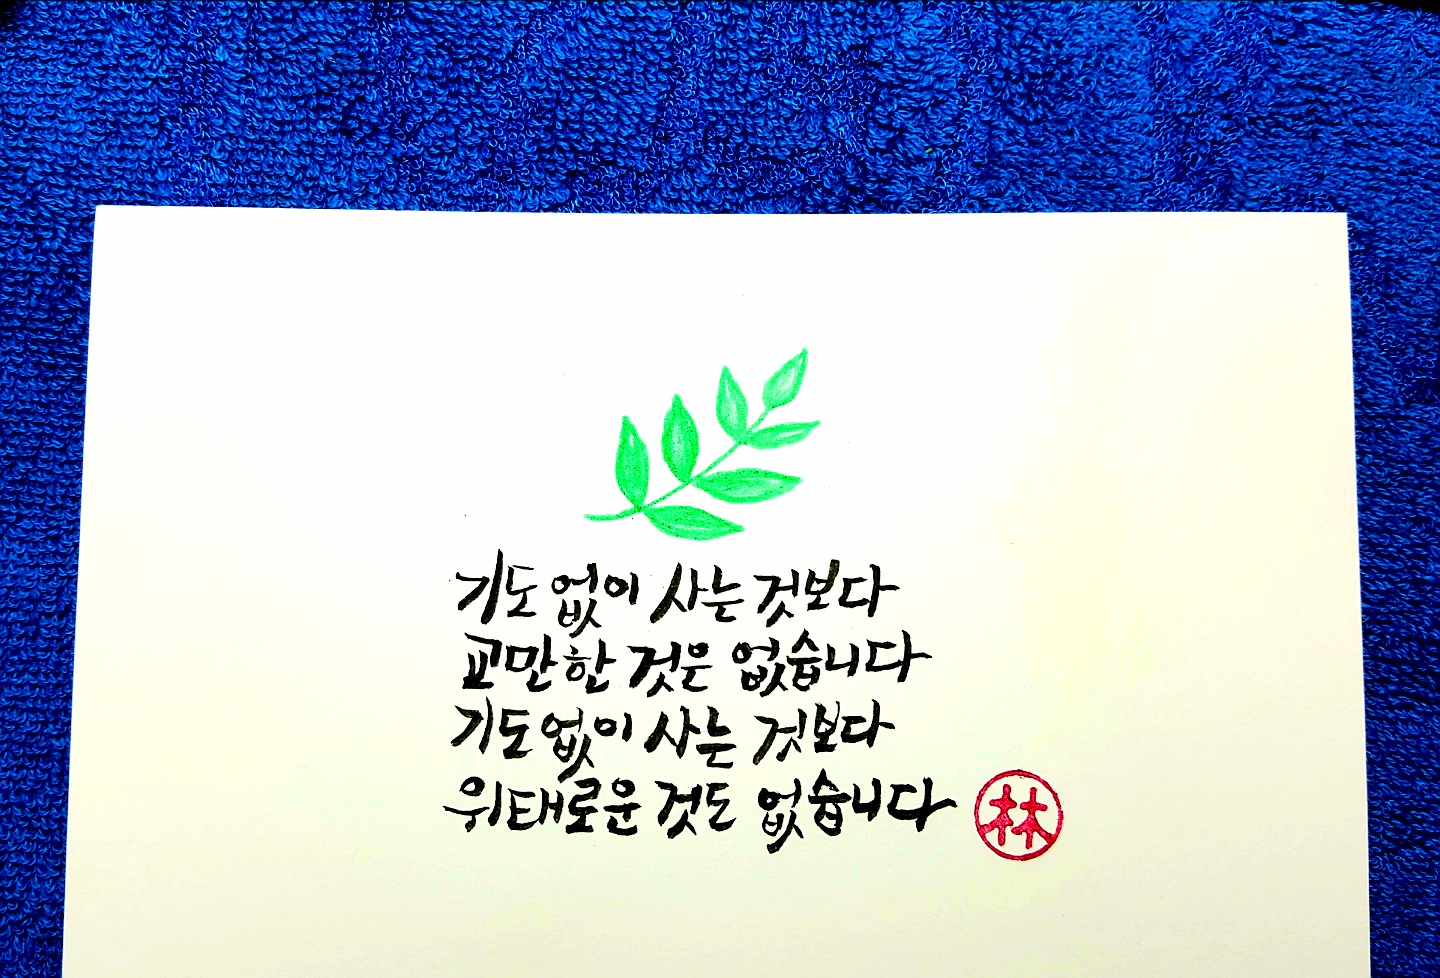 기도 없이 사는 것보다
교만한 것은 없습니다
기도 없이 사는 것보다
위태로운 것도 없습니다
林